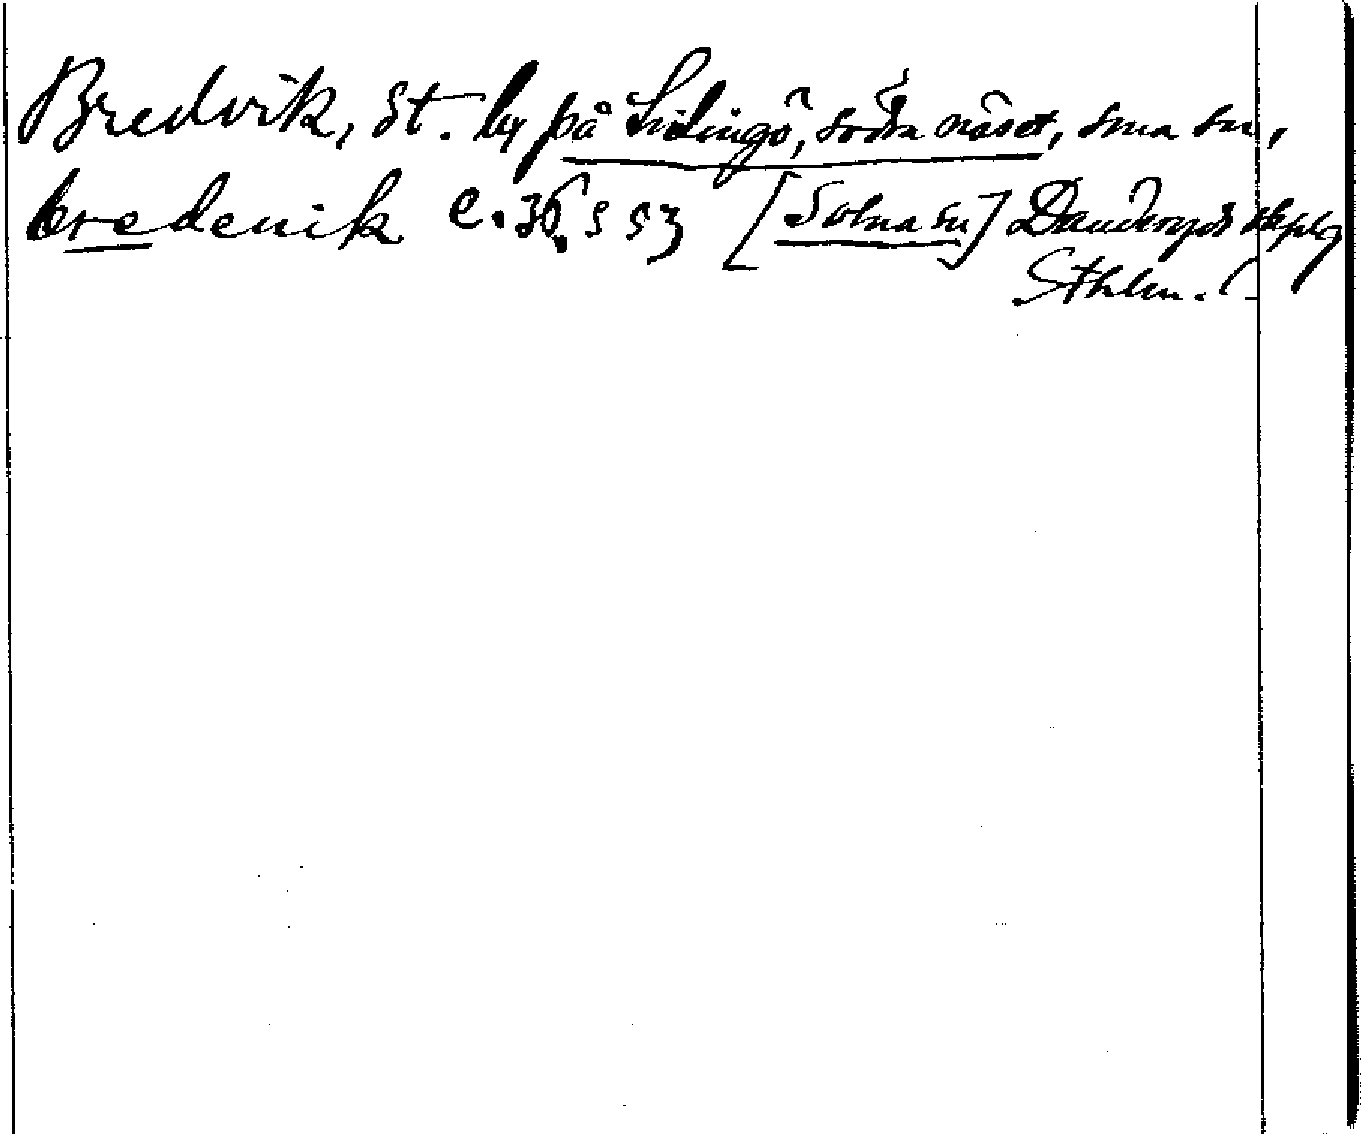 Bredvik, St. by på Lidingö, södra näset, sma sn,
bredeuik c. 36 s 53 [Solna sn] Danderyds skplg
Sthlm.